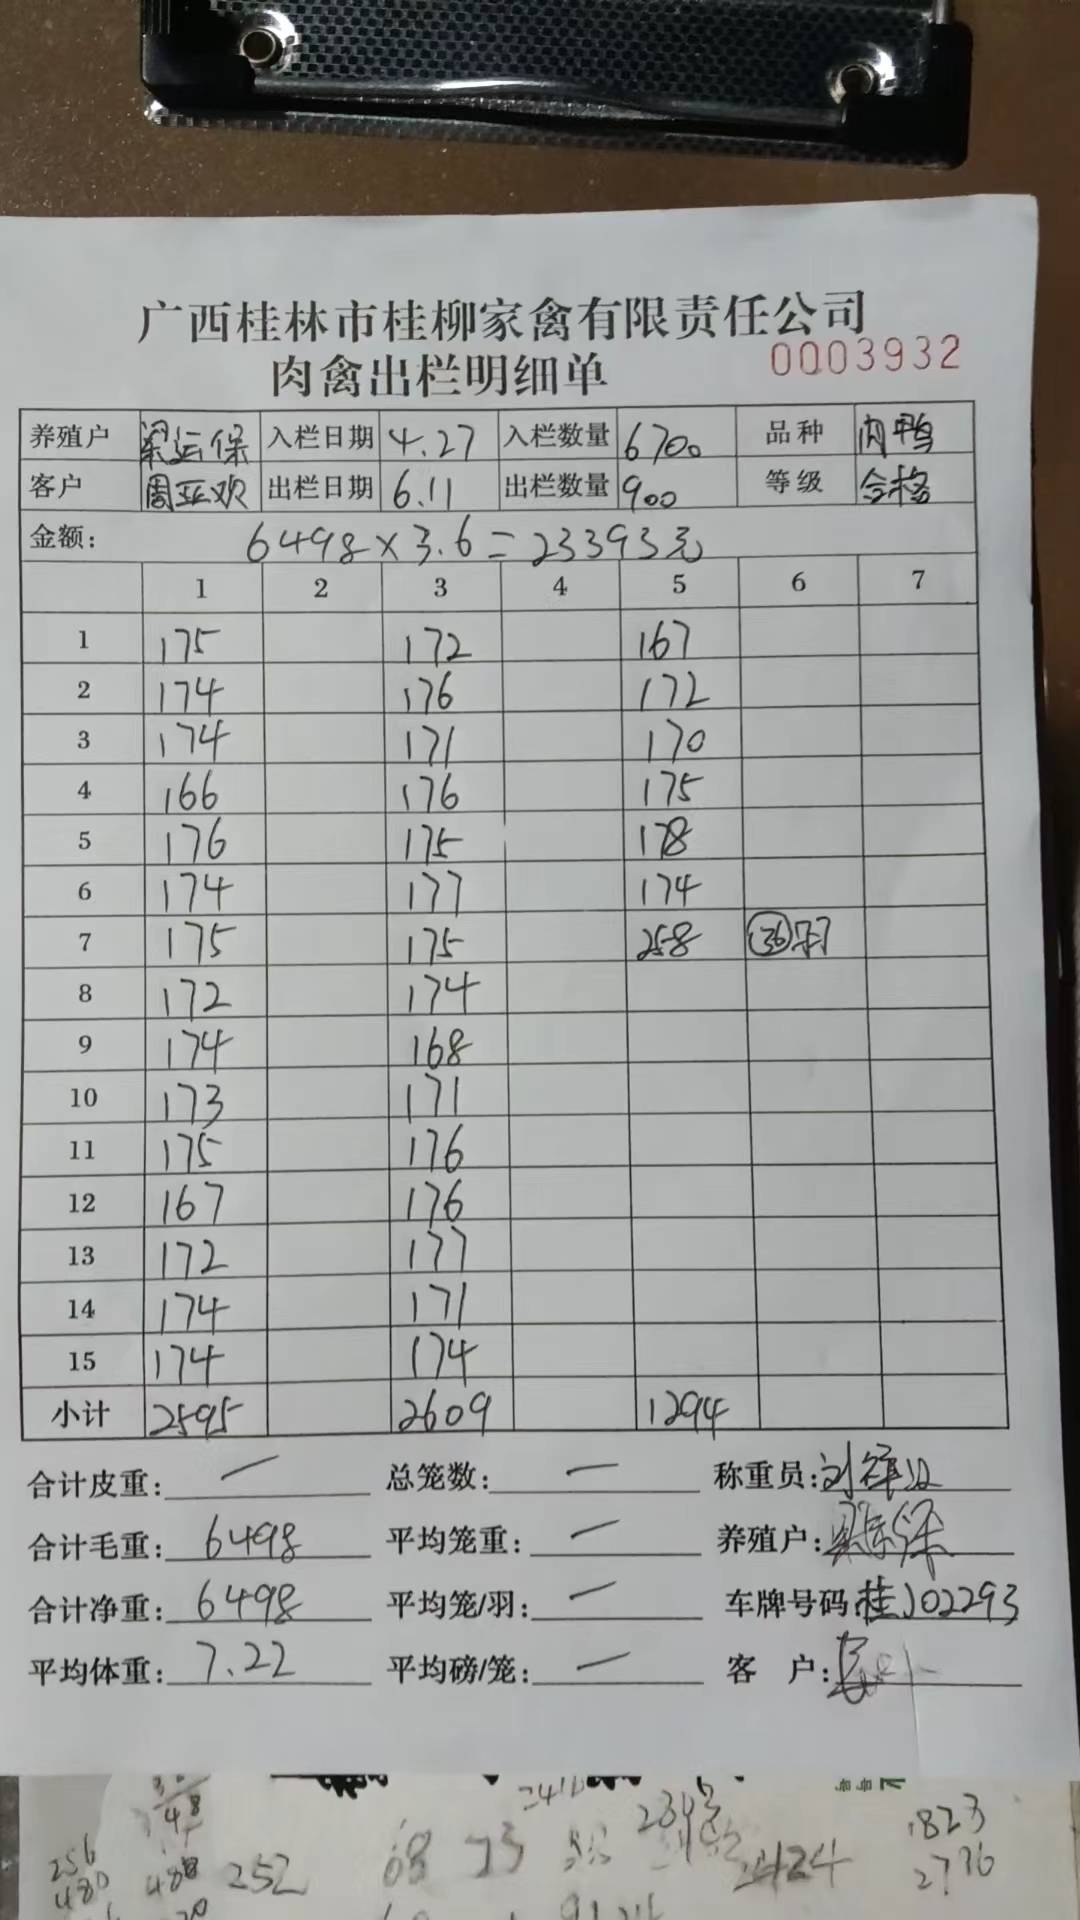 广西桂林市桂柳家禽有限责任公司
肉禽出栏明细单 0003932
养殖户 梁运保 入栏日期 4.27 入栏数量 6700 品种 肉鸭
客户 周亚欢 出栏日期 6.11 出栏数量 900 等级 合格
金额: 6498×3.6=23393元
1 2 3 4 5 6 7
1 175 172 167
2 174 176 172
3 174 171 170
4 166 176 175
5 176 175 178
6 174 177 174
7 175 175 258 36
8 172 174
9 174 168
10 173 171
11 175 176
12 167 176
13 172 177
14 174 171
15 174 174
小计 2595 2609 1294
合计皮重: — 总笼数: — 称重员:
合计毛重: 6498 平均笼重: — 养殖户:
合计净重: 6498 平均笼/羽: — 车牌号码: 桂J02293
平均体重: 7.22 平均磅/笼: — 客 户:
1823
256 252 68 73 2424 2776
480 488